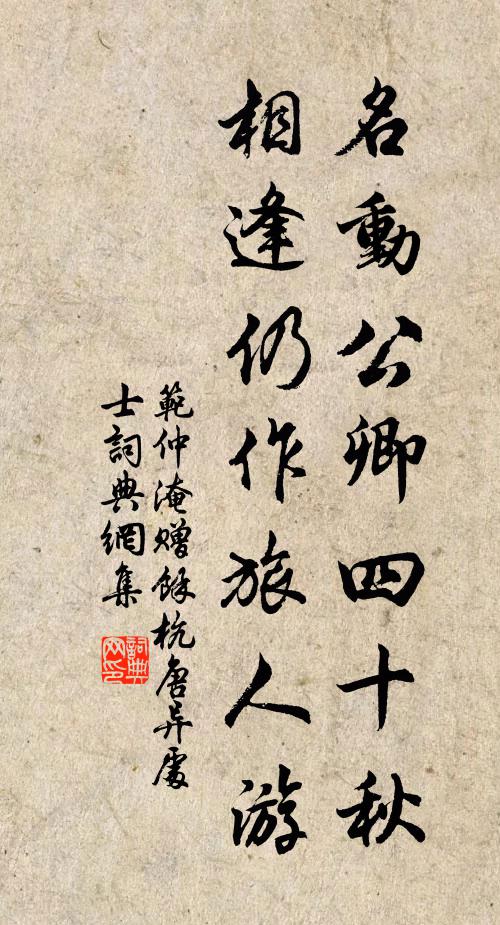 名動公卿四十秋
相逢仍作旅人游
範仲淹赠餘杭唐异處
士詞典網集
詞典
网印